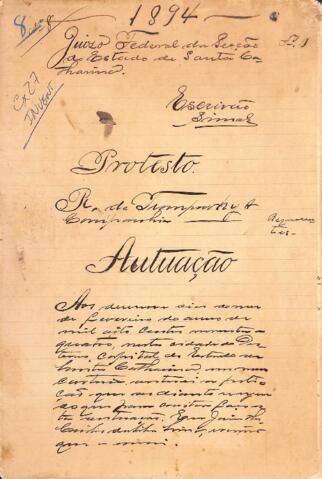 1894
Juizo Federal da Secção
do Estado de Santa Ca-
tharina
Fl. 1
Cx27
INVENT
Escrivão
Protesto.
R. de Trompowsky &
Companhia
Requeren
tes-
Autuação
Aos dezenove dias do mez
de Fevereiro do anno de
mil oito centos noventa e
quatro, nesta cidade do Des
terro, Capital do Estado de
Santa Catharina, em meu
cartorio autuei a peti
ção que ao diante se
segue para constar faço
esta autuação. Eu
que a escrevi.